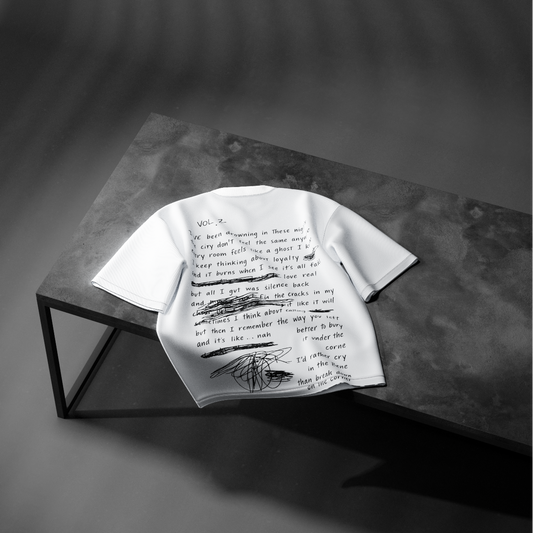 VOL. 2
I've been drowning in these my
city don't feel the same any
ry room feels like a ghost I b
keep thinking about loyalty
and it burns when I see it's all fa
love real
but all I got was silence back
and fix the cracks in my
if like it will
sometimes I think about
but then I remember the way you left
and it's like.. nah
better to bury
it under the
corne
I'd rather cry
in the
than break down
on the corner